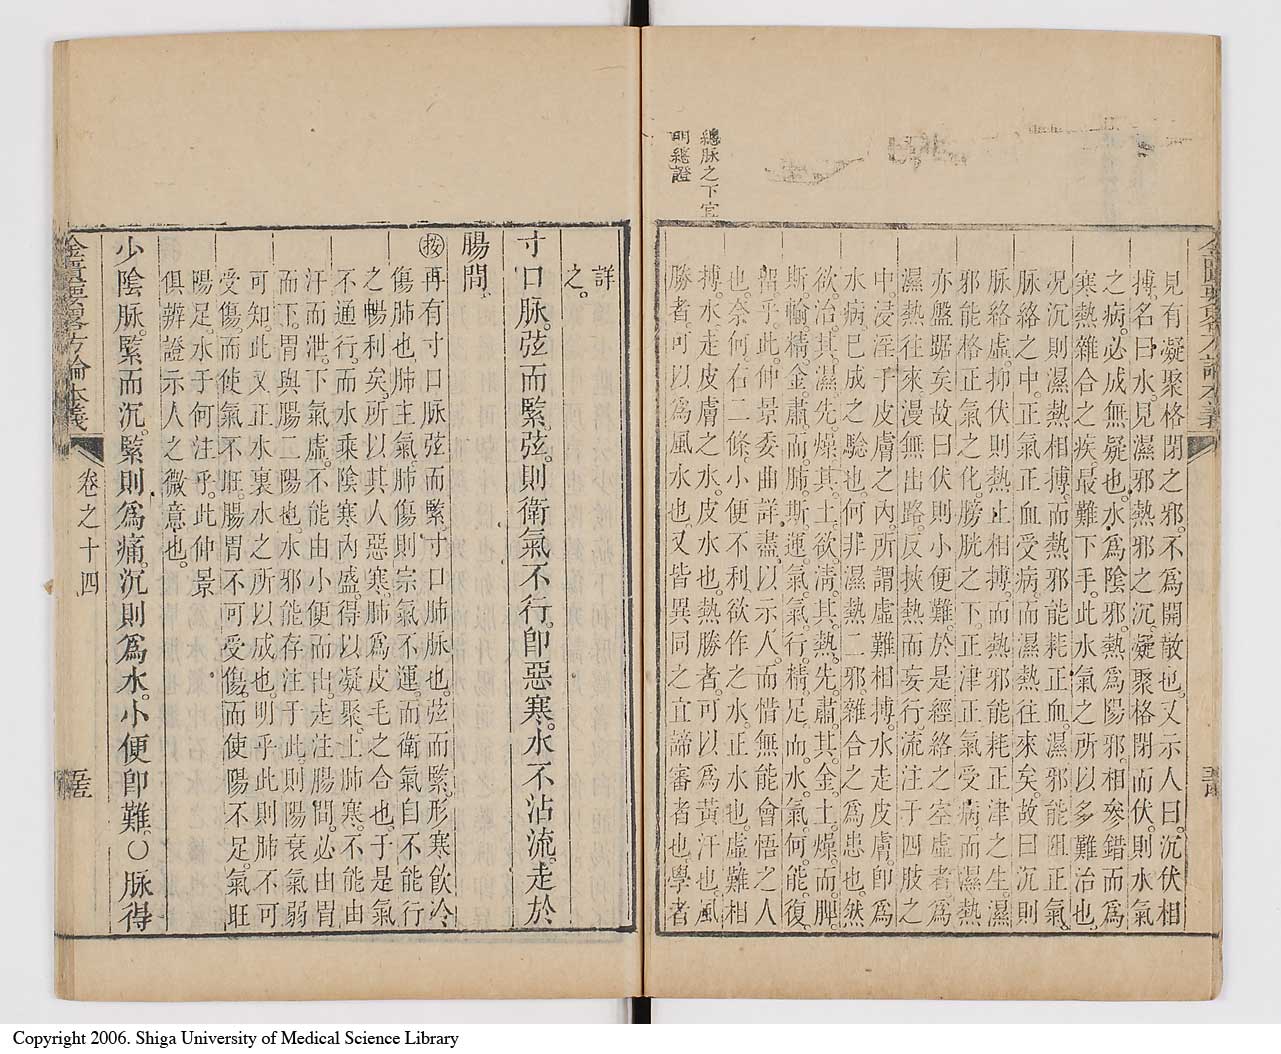 總脉之下宜
明總證
見有凝聚格閉之邪。不爲開散也。又示人曰。沉伏相
搏。名曰水。見濕邪熱邪之沉凝聚格閉而伏。則水氣
之病。必成無疑也。水爲陰邪。熱爲陽邪。相參錯而爲
寒熱雜合之疾。最難下手。此水氣之所以多難治也。
況沉則濕熱相搏。而熱邪能耗正血。濕邪能阻正氣。
脉絡之中。正氣正血受病。而濕熱往來矣。故曰沉則
脉絡虛。抑伏則熱止相搏。而熱邪能耗正津之生。濕
邪能格正氣之化。膀胱之下。正津正氣受病。而濕熱
亦盤踞矣。故曰伏則小便難。於是經絡之空虛者。爲
濕熱往來漫無出路。反挾熱而妄行流注于四肢之
中。浸淫于皮膚之內。所謂虛難相搏。水走皮膚。卽爲
水病。已成之驗也。何非濕熱二邪。雜合之爲患也。然
欲。治。其。濕。先。燥。其。土。欲。淸。其。熱。先。肅。其。金。土。燥。而。脾。
斯。輸。精。金。肅。而。肺。斯。運。氣。氣。行。精。足。而。水。氣。何。能。復。
聚乎。此仲景委曲詳盡。以示人。而惜無能會悟之人
也。奈何。石二條。小便不利。欲作之水。正水也。虛難相
搏。水走皮膚之水。皮水也。熱勝者。可以爲黃汗也。風
勝者。可以爲風水也。又皆異同之宜諦審者也。學者
詳
之。
寸口脉。弦而緊。弦。則衛氣不行。卽惡寒。水不沾流。走於
腸間。
按再有寸口脉弦而緊。寸口肺脉也。弦而緊。形寒飮冷
傷肺也。肺主氣肺傷則宗氣不運。而衛氣自不能行
之暢利矣。所以其人惡寒。肺爲皮毛之合也。于是氣
不通行。而水乘陰寒內盛。得以凝聚。上肺寒。不能由
汗而泄。下氣虛。不能由小便而出。走注腸間。必由胃
而下。胃與腸二陽也。水邪能存注于此。則陽衰氣弱
可知。此又正水裏水之所以成也。明乎此。則肺不可
受傷。而使氣不旺。腸胃不可受傷。而使陽不足。氣旺
陽足。水于何注乎。此仲景
俱辨證示人之微意也。
少陰脉。緊而沉。緊則爲痛。沉則爲水。小便卽難。○脉得
金匱要畧方論本義
卷之十四
五五
Copyright 2006. Shiga University of Medical Science Library